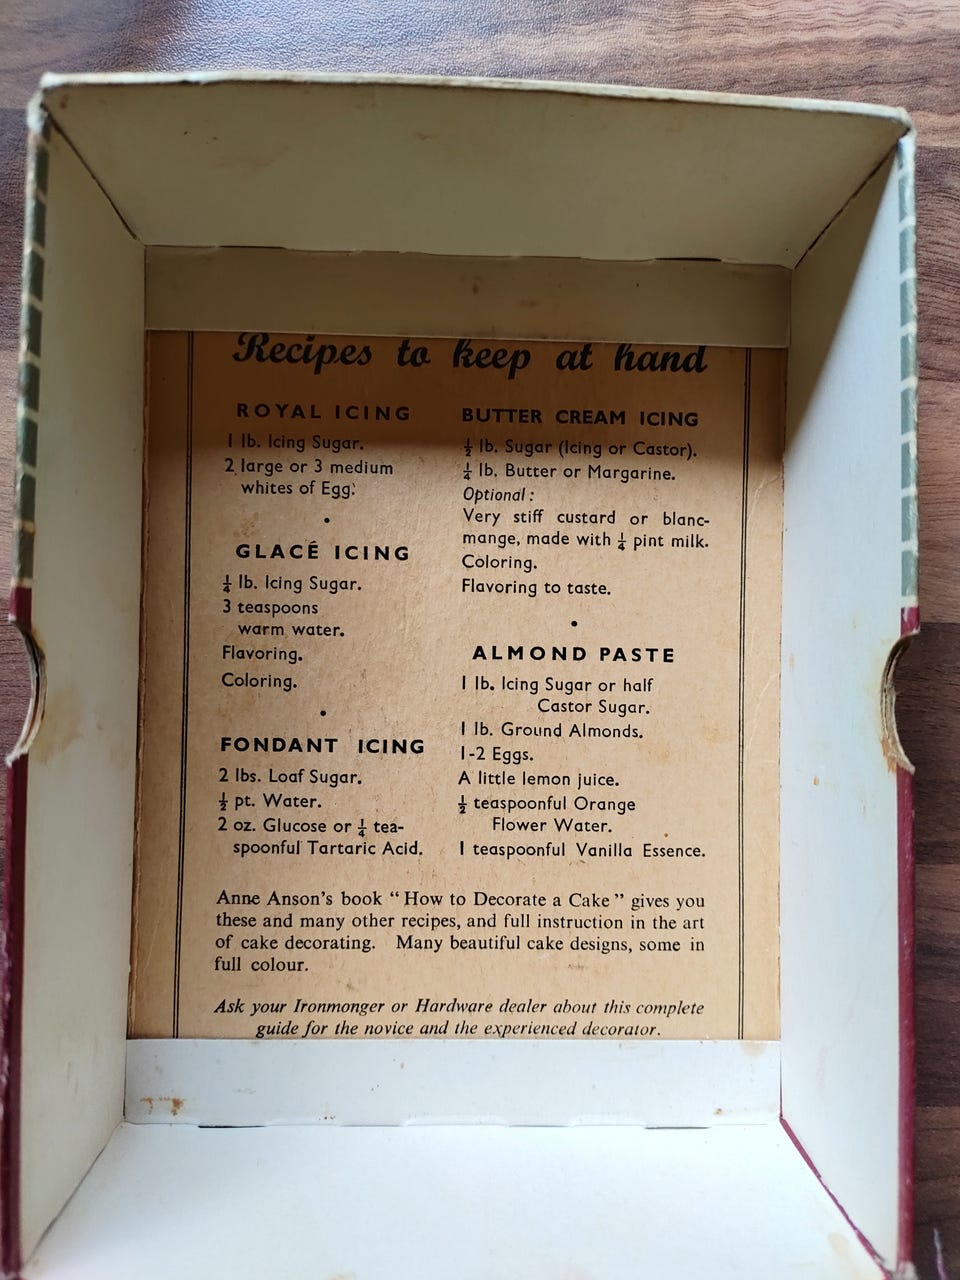 Recipes to keep at hand
ROYAL ICING
1 lb. Icing Sugar.
2 large or 3 medium
whites of Egg.
GLACÉ ICING
¼ lb. Icing Sugar.
3 teaspoons
warm water.
Flavoring.
Coloring.
FONDANT ICING
2 lbs. Loaf Sugar.
½ pt. Water.
2 oz. Glucose or ¼ tea-
spoonful Tartaric Acid.
BUTTER CREAM ICING
½ lb. Sugar (Icing or Castor).
¼ lb. Butter or Margarine.
Optional :
Very stiff custard or blanc-
mange, made with ¼ pint milk.
Coloring.
Flavoring to taste.
ALMOND PASTE
1 lb. Icing Sugar or half
Castor Sugar.
1 lb. Ground Almonds.
1-2 Eggs.
A little lemon juice.
½ teaspoonful Orange
Flower Water.
1 teaspoonful Vanilla Essence.
Anne Anson's book “ How to Decorate a Cake ” gives you
these and many other recipes, and full instruction in the art
of cake decorating. Many beautiful cake designs, some in
full colour.
Ask your Ironmonger or Hardware dealer about this complete
guide for the novice and the experienced decorator.